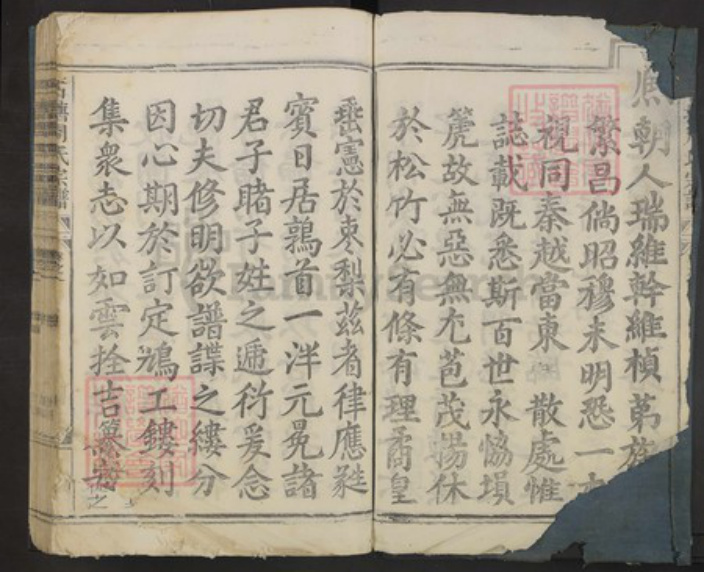 朝人瑞維幹維楨第族
繁昌倘昭穆未明恐一
視同秦越當東 散處惟
誌載既悉斯百世永恊塤
箎故無惡無尤苞茂暢休
於松竹必有條有理矞皇
垂憲於枣梨茲者律應蕤
賓日居鶉首一泮元晃諸
君子睹子姓之逓衍爰念
切夫修明欲譜諜之縷分
因心期於訂定鳩工鏤刻
集衆志以如雲拴吉
氏宗譜
FamilySearch